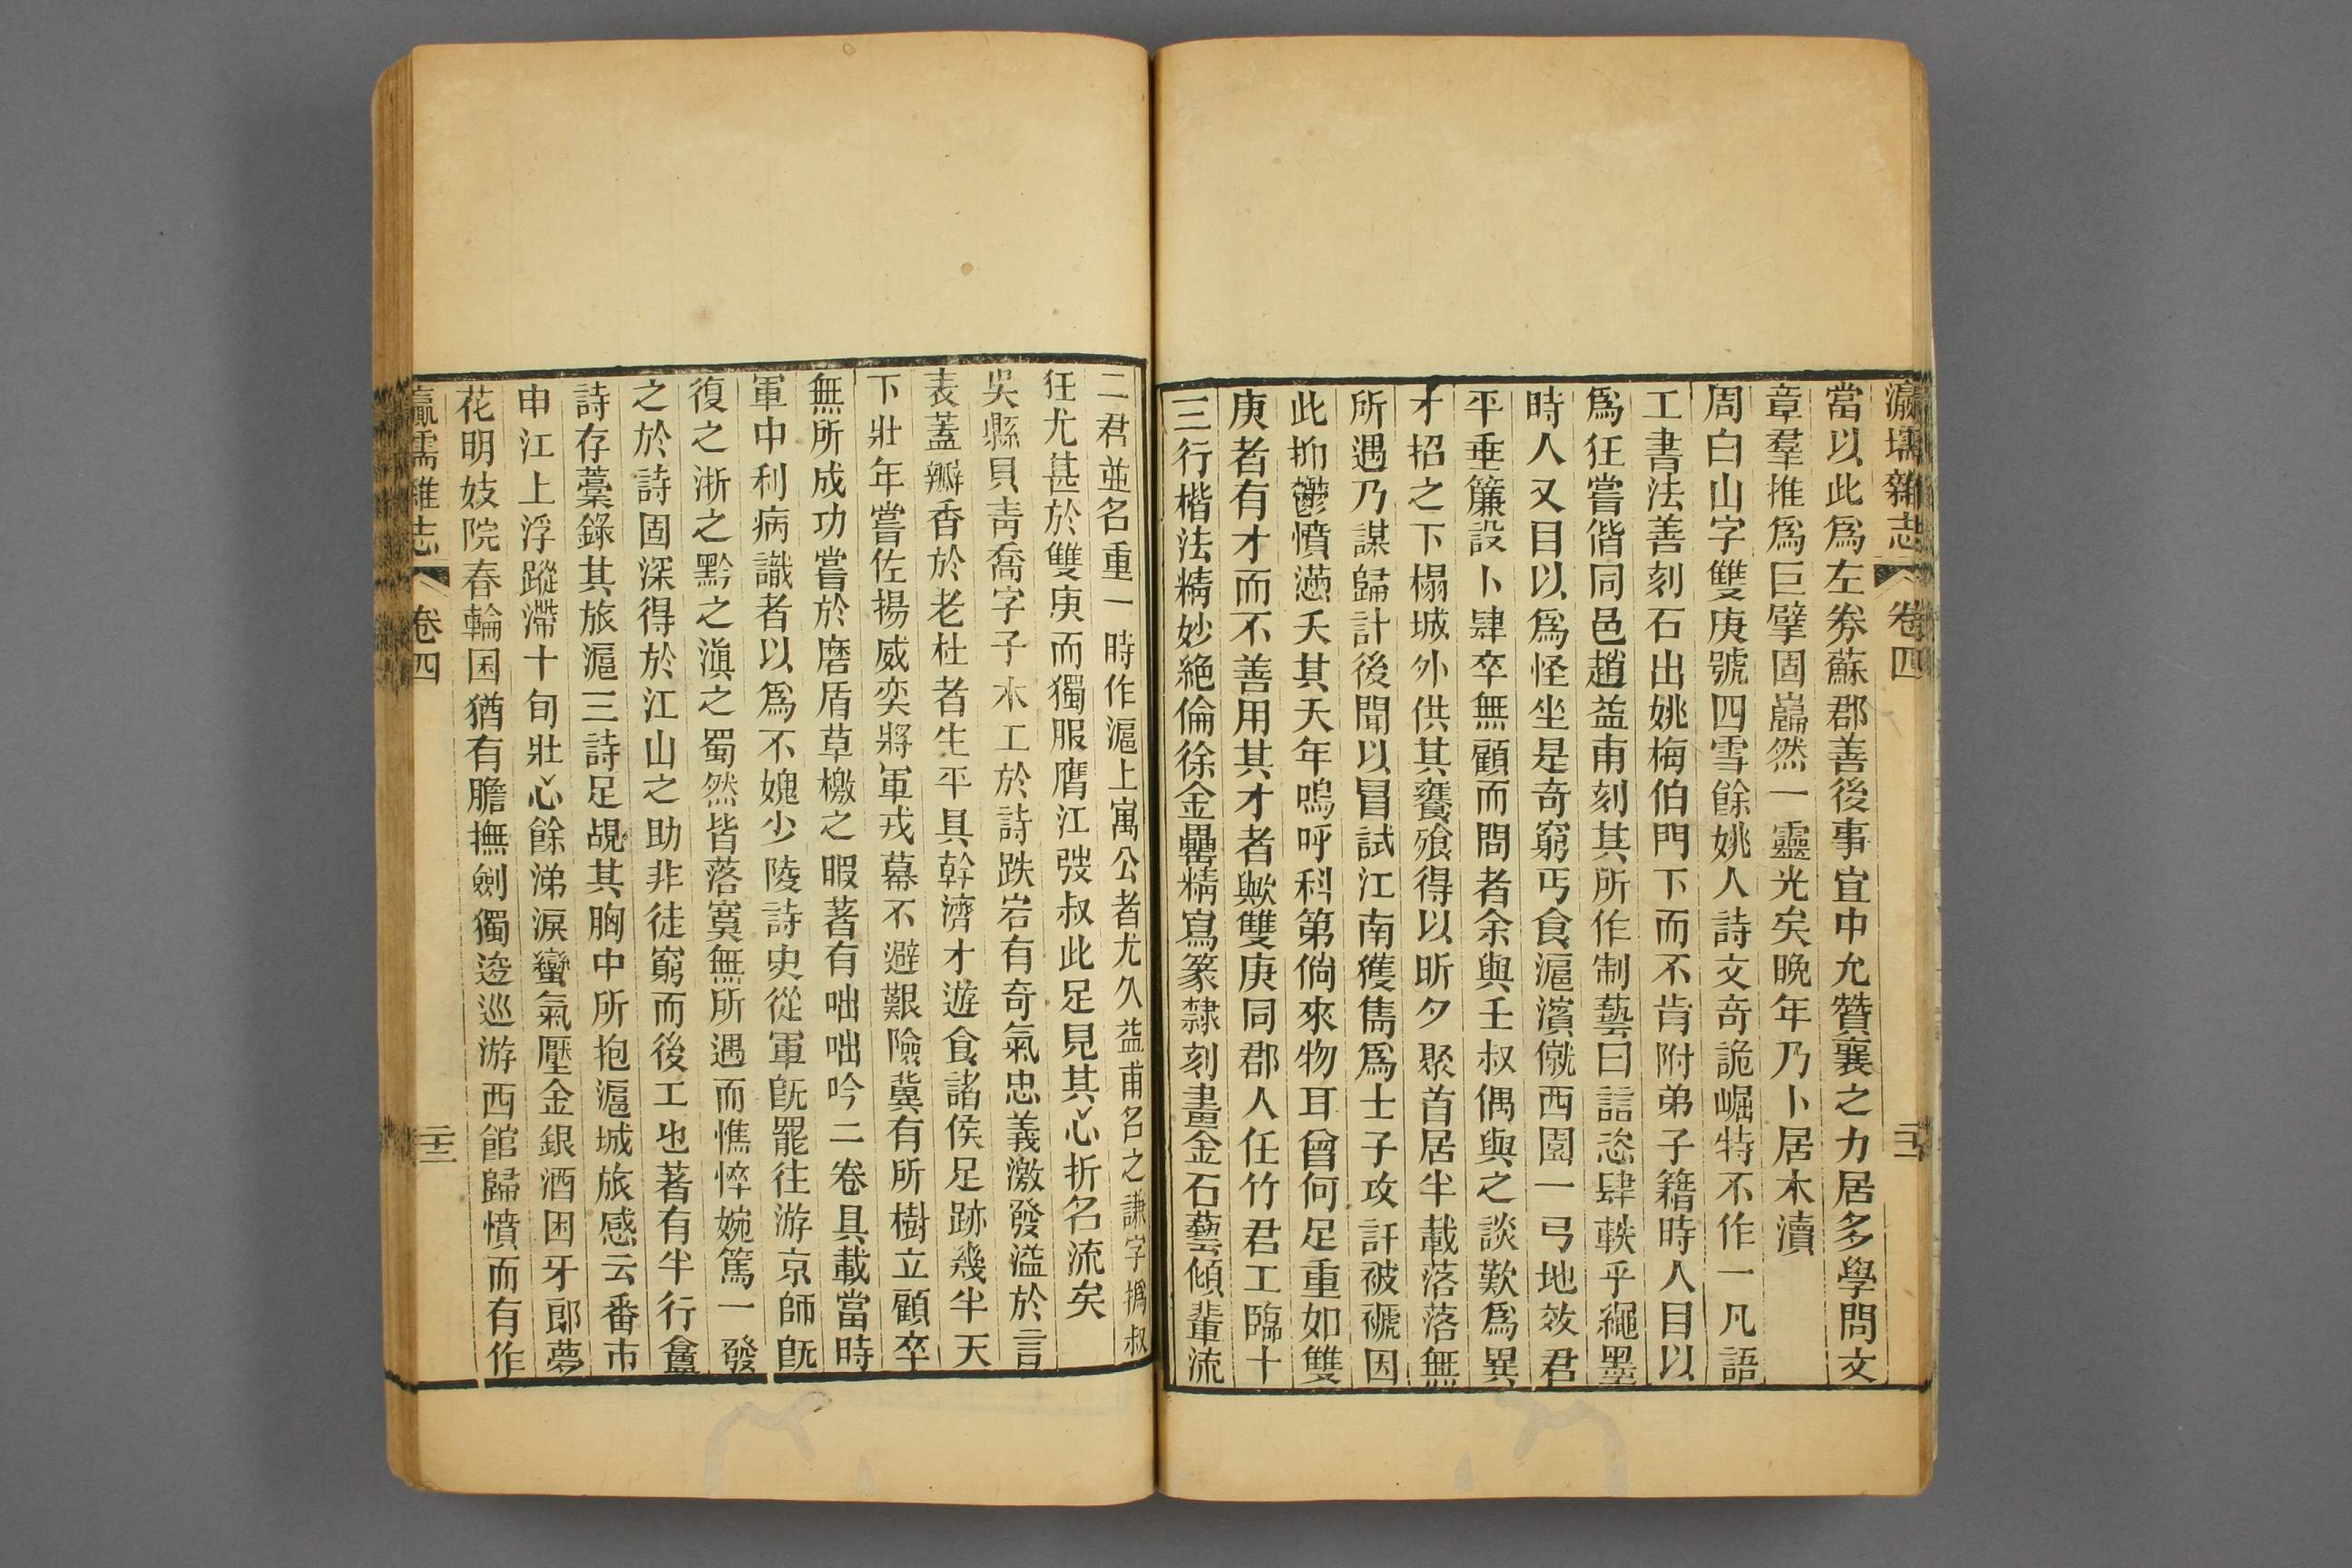 瀛壖雜志 卷四
當以此爲左劵蘇郡善後事宜中允贊襄之力居多學問文
章羣推爲巨擘固巋然一靈光矣晚年乃卜居木瀆
周白山字雙庚號四雪餘姚人詩文奇詭崛特不作一凡語
工書法善刻石出姚梅伯門下而不肯附弟子籍時人目以
爲狂嘗偕同邑趙益甫刻其所作制藝曰譶恣肆軼乎繩墨
時人又目以爲怪坐是奇窮丐食滬濱僦西園一弓地效君
平垂簾設卜肆卒無顧而問者余與壬叔偶與之談歎爲異
才招之下榻城外供其饔飱得以昕夕聚首居半載落落無
所遇乃謀歸計後聞以冒試江南獲雋爲士子攻訐被褫因
此抑鬱憤懣夭其天年嗚呼科第倘來物耳曾何足重如雙
庚者有才而不善用其才者歟雙庚同郡人任竹君工臨十
三行楷法精妙絕倫徐金罍精寫篆隸刻畫金石藝傾輩流
二君並名重一時作滬上寓公者尤久益甫名之謙字撝叔
狂尤甚於雙庚而獨服膺江弢叔此足見其心折名流矣
吳縣貝靑喬字子木工於詩跌宕有奇氣忠義激發溢於言
表蓋瓣香於老杜者生平具幹濟才遊食諸侯足跡幾半天
下壯年嘗佐揚威奕將軍戎幕不避艱險冀有所樹立顧卒
無所成功嘗於磨盾草檄之暇著有咄咄吟二卷具載當時
軍中利病識者以爲不媿少陵詩史從軍旣罷往游京師旣
復之浙之黔之滇之蜀然皆落寞無所遇而憔悴婉篤一發
之於詩固深得於江山之助非徒窮而後工也著有半行盦
詩存藁錄其旅滬三詩足覘其胸中所抱滬城旅感云番市
申江上浮蹤滯十旬壯心餘涕淚蠻氣壓金銀酒困牙郎夢
花明妓院春輪囷猶有膽撫劍獨逡巡游西館歸憤而有作
瀛壖雜志 卷四 二十三